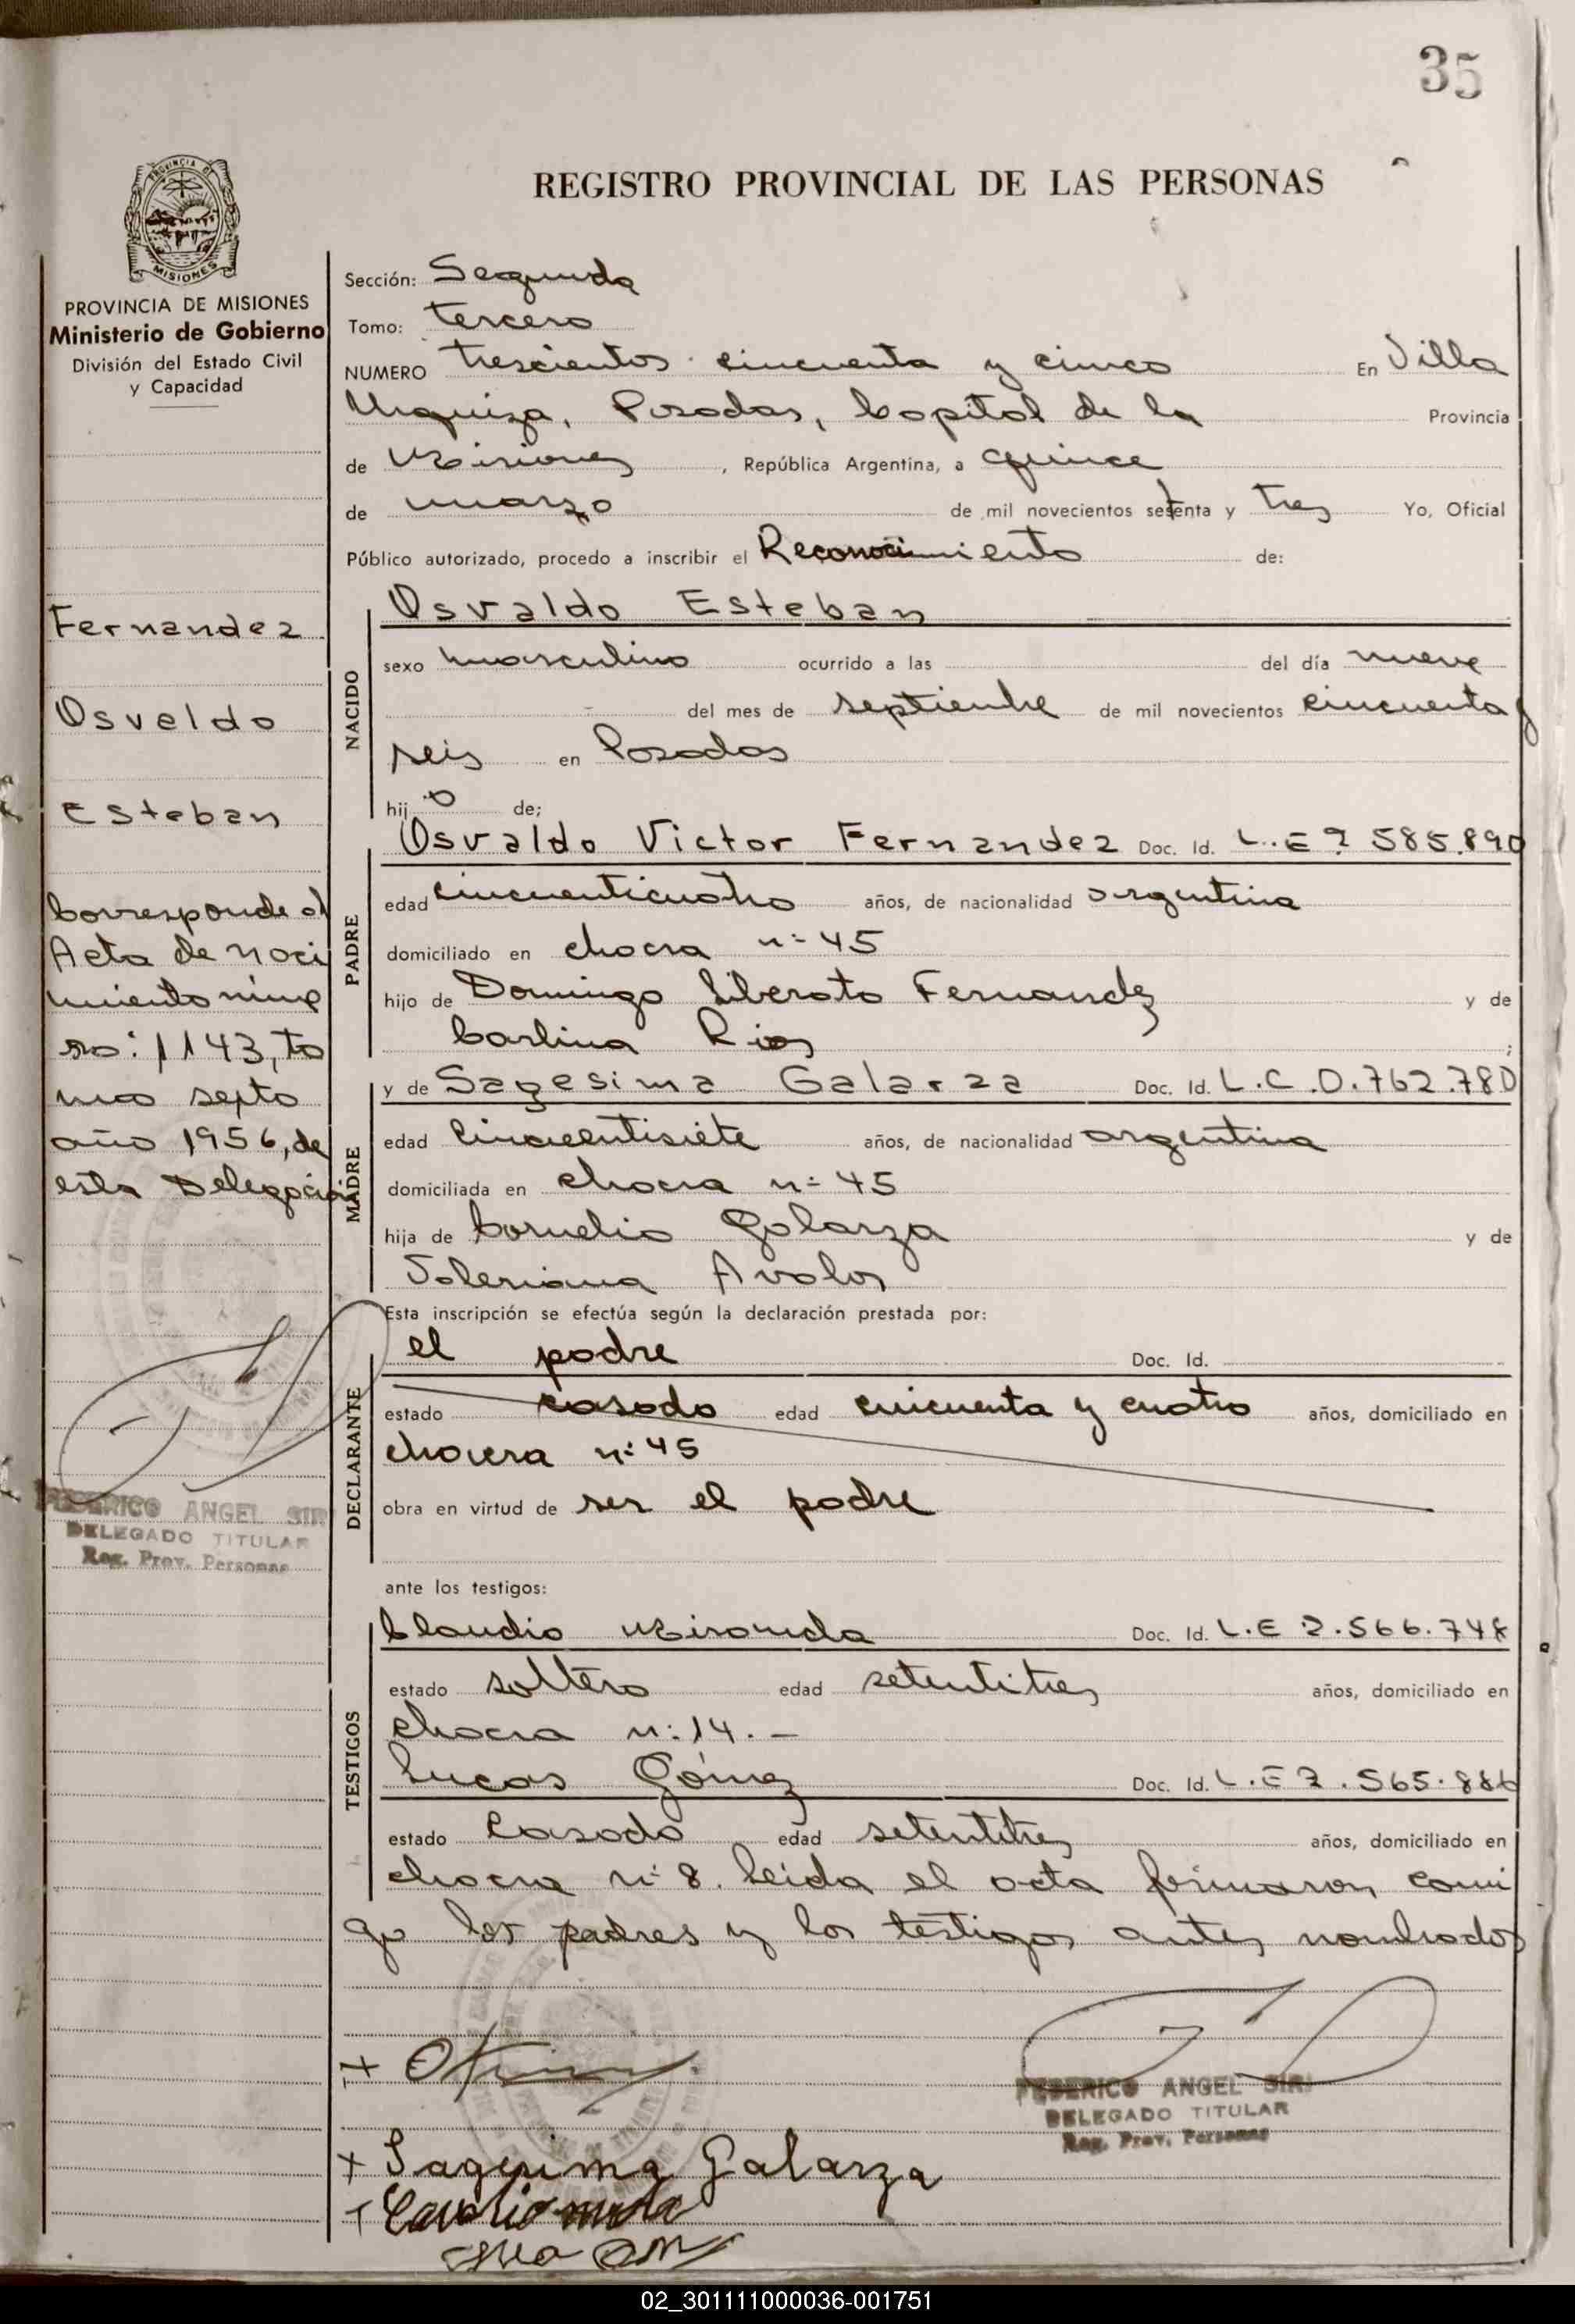 35
REGISTRO PROVINCIAL DE LAS PERSONAS
PROVINCIA DE MISIONES
Ministerio de Gobierno
División del Estado Civil
y Capacidad
Fernandez
Osvaldo
Esteban
Corresponde al
Acta de naci
miento núme
ro: 1143, to
mo septo
año 1956, de
esta Delegación
FEDERICO ANGEL SIRI
DELEGADO TITULAR
Reg. Prov. Personas
Sección: Segunda
Tomo: tercero
NUMERO trescientos cincuenta y cinco En Villa
Urquiza, Posadas, Capital de la Provincia
de Misiones, República Argentina, a quince
de marzo de mil novecientos setenta y tres Yo, Oficial
Público autorizado, procedo a inscribir el Reconocimiento de:
NACIDO
Osvaldo Esteban
sexo masculino ocurrido a las del día nueve
del mes de septiembre de mil novecientos cincuenta y
seis en Posadas
hijo de;
PADRE
Osvaldo Victor Fernandez Doc. Id. L.E 7 585.890
edad cincuenticuatro años, de nacionalidad argentina
domiciliado en chacra nº 45
hijo de Domingo Liberato Fernandez y de
Carlina Rios;
MADRE
y de Sagesima Galarza Doc. Id. L.C.0.762.780
edad cincuentisiete años, de nacionalidad argentina
domiciliada en chacra nº 45
hija de Cornelio Galarza y de
Avalos
Esta inscripción se efectúa según la declaración prestada por:
DECLARANTE
el padre Doc. Id.
estado casado edad cincuenta y cuatro años, domiciliado en
chacra nº 45
obra en virtud de ser el padre
ante los testigos:
TESTIGOS
Claudio Miranda Doc. Id. L.E 7.566.748
estado soltero edad setentitres años, domiciliado en
chacra nº 14.—
Lucas Gómez Doc. Id. L.E 7.565.886
estado Casado edad setentitres años, domiciliado en
chacra nº 8. Leida el acta firmaron conmi
go los padres y los testigos antes nombrados
FEDERICO ANGEL SIRI
DELEGADO TITULAR
Reg. Prov. Personas
+ Sagesima Galarza
02_301111000036-001751